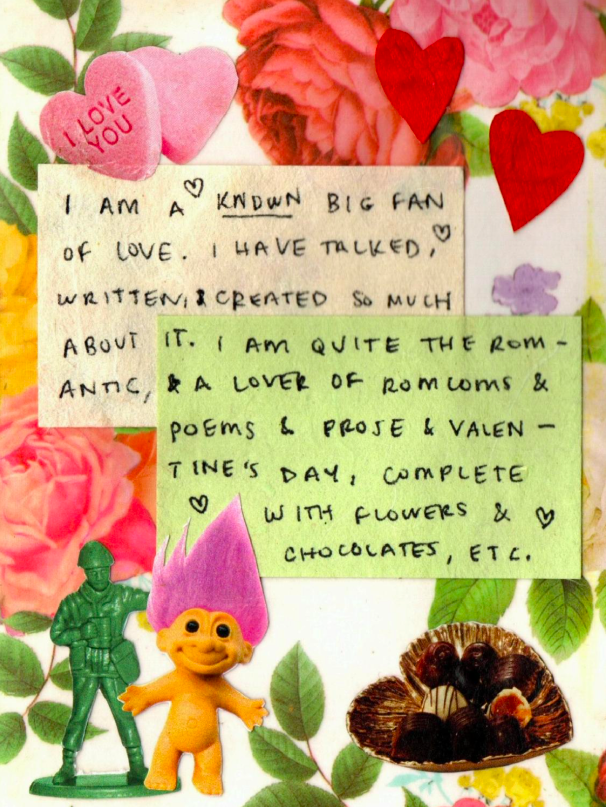 I LOVE
YOU
I AM A KNOWN BIG FAN
OF LOVE. I HAVE TALKED,
WRITTEN, & CREATED SO MUCH
ABOUT IT. I AM QUITE THE ROM-
ANTIC, & A LOVER OF ROMCOMS &
POEMS & PROSE & VALEN-
TINE'S DAY, COMPLETE
WITH FLOWERS &
CHOCOLATES, ETC.